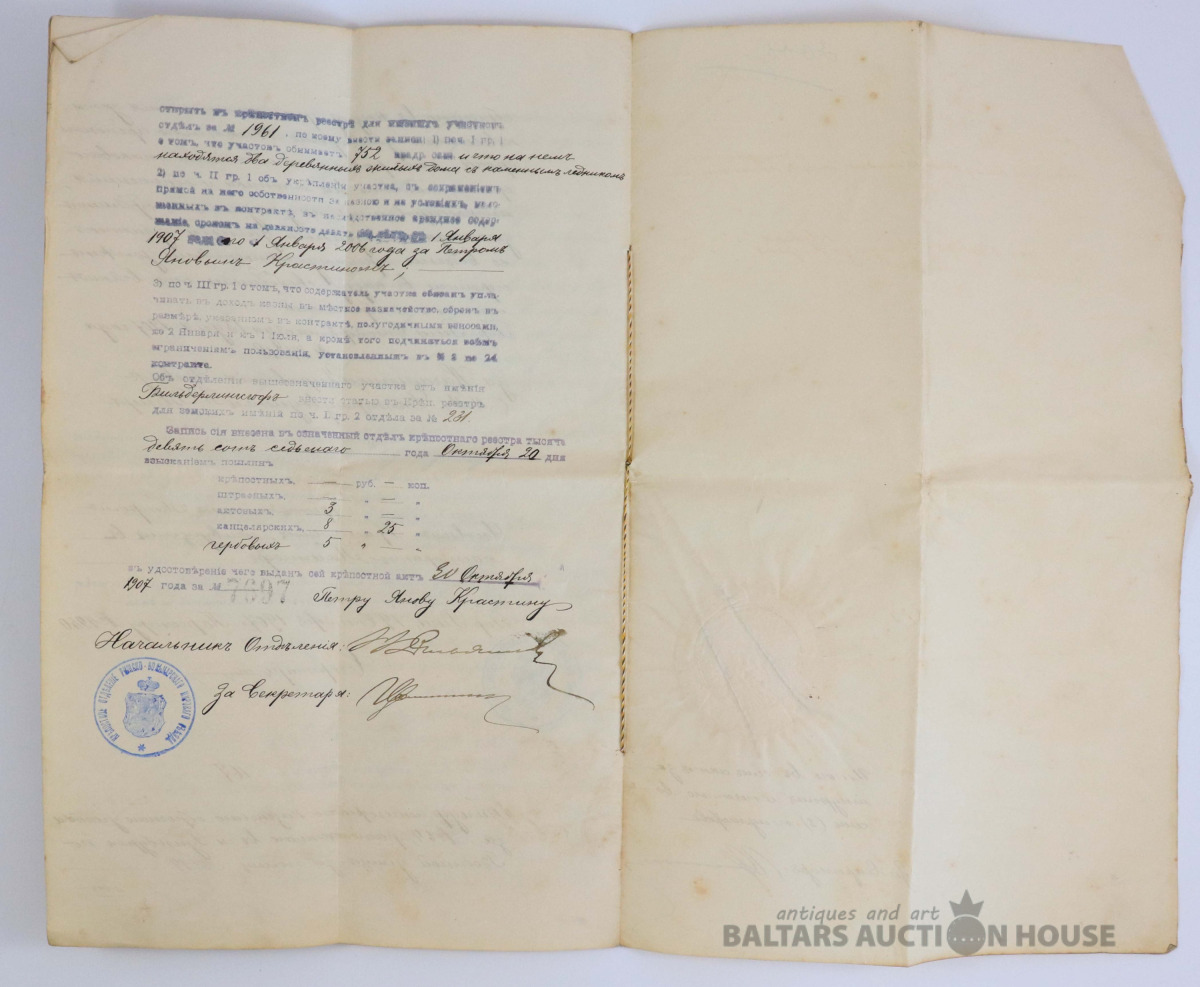 открыть въ крѣпостномъ реестрѣ для мызныхъ участковъ
отдѣлъ за № 1961, по коему внести записи: 1) по ч. I гр. 1
о томъ, что участокъ обнимаетъ 752 квадр. саж и что на немъ
находятся два деревянныхъ жилыхъ дома съ каменнымъ ледникомъ
2) по ч. II гр. 1 объ укрѣпленіи участка, съ сохраненіемъ
права на него собственности за казною и на условіяхъ, изло-
женныхъ въ контрактѣ, въ наслѣдственное арендное содер-
жаніе, срокомъ на девяносто девять лѣтъ съ 1 Января
1907 по 1 Января 2006 года за Петромъ
Яновымъ Крастинымъ;
3) по ч. III гр. 1 о томъ, что содержатель участка обязанъ упла-
чивать въ доходъ казны въ мѣстное казначейство, оброкъ въ
размѣрѣ, указанномъ въ контрактѣ, полугодичными взносами,
ко 2 Января и къ 1 Іюля, а кромѣ того подчиняться всѣмъ
ограниченіямъ пользованія, установленнымъ въ § 2 по 24
контракта.
Объ отдѣленіи вышеозначеннаго участка отъ имѣнія
Вильдерлингсгофъ внести статью въ Крѣп. реестръ
для земскихъ имѣній по ч. I гр. 2 отдѣла за № 231.
Запись сія внесена въ означенный отдѣлъ крѣпостнаго реестра тысяча
девять сотъ седьмаго года Октября 20 дня
взысканіемъ пошлинъ
крѣпостныхъ, — руб. — коп.
штрафныхъ, — " — "
актовыхъ, 3 " — "
канцелярскихъ, 8 " 25 "
гербовыхъ 5 " — "
въ удостовѣреніе чего выданъ сей крѣпостной актъ 30 Октября
1907 года за № 7697 Петру Янову Крастину
Начальникъ Отдѣленія:
За Секретаря:
КРѢПОСТНОЕ ОТДѢЛЕНІЕ РИЖСКО-ВОЛЬМАРСКАГО УѢЗДА
antiques and art
BALTARS AUCTION HOUSE